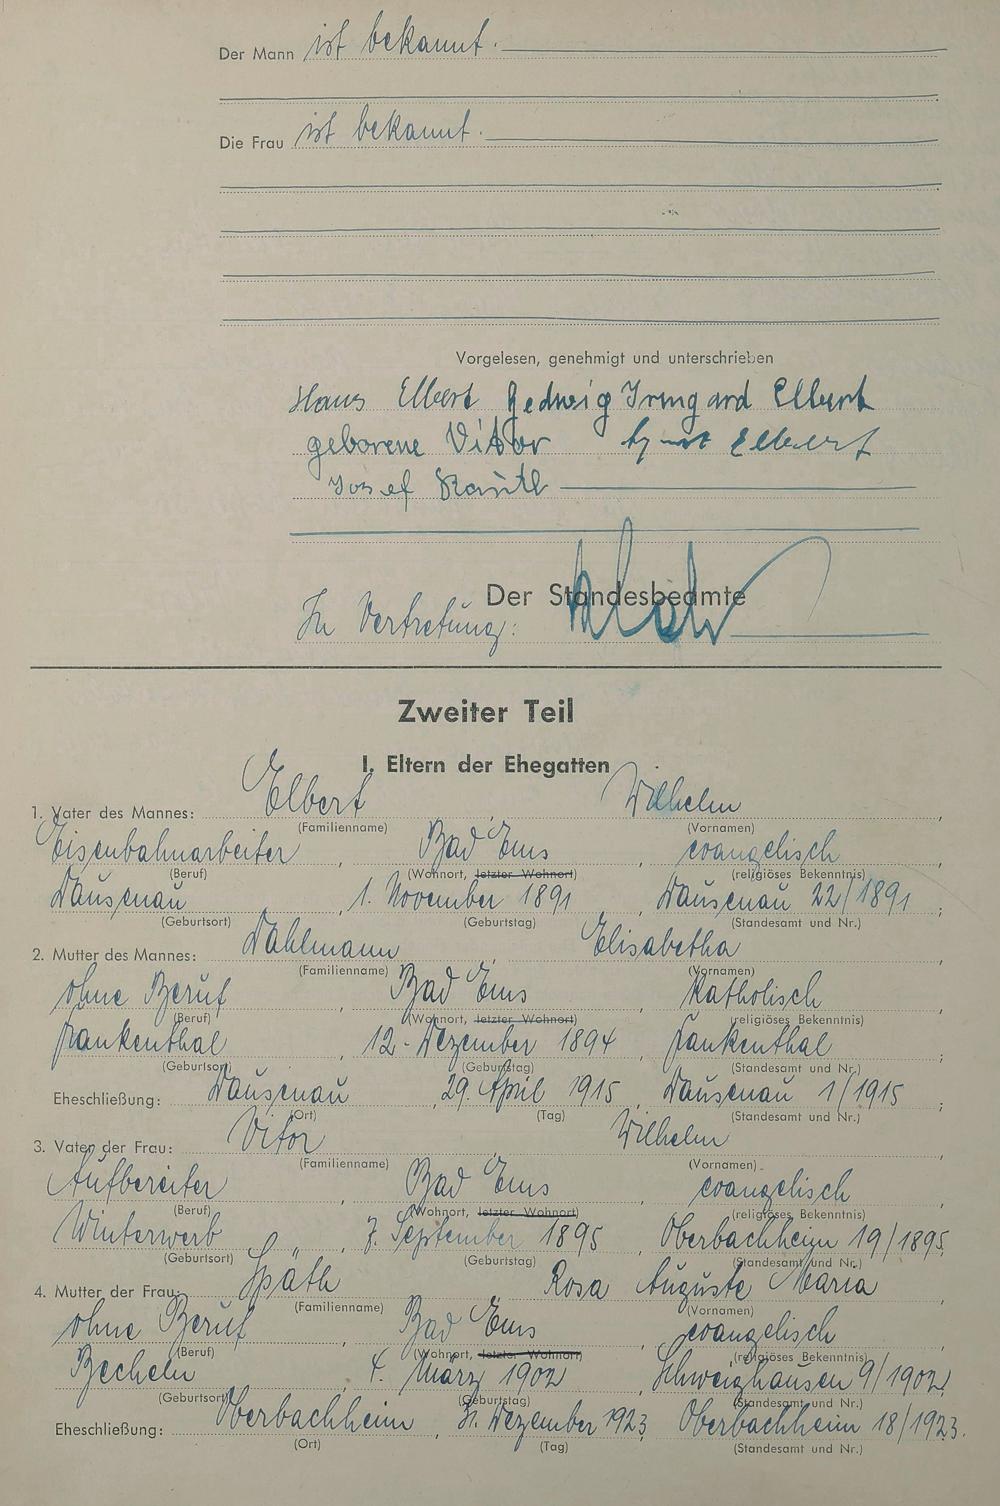 Der Mann ist bekannt.
Die Frau ist bekannt.
Vorgelesen, genehmigt und unterschrieben
Hans Elbert Hedwig Irmgard Elbert
geborene Vitor Elbert
Josef
Der Standesbeamte
In Vertretung:
Zweiter Teil
I. Eltern der Ehegatten
1. Vater des Mannes: Elbert Wilhelm
(Familienname) (Vornamen)
Eisenbahnarbeiter, Bad Ems, evangelisch,
(Beruf) (Wohnort, letzter Wohnort) (religiöses Bekenntnis)
Dausenau, 1. November 1891, Dausenau 22/1891;
(Geburtsort) (Geburtstag) (Standesamt und Nr.)
2. Mutter des Mannes: Dahlmann, Elisabetha,
(Familienname) (Vornamen)
ohne Beruf, Bad Ems, katholisch,
(Beruf) (Wohnort, letzter Wohnort) (religiöses Bekenntnis)
Frankenthal, 12. Dezember 1894, Frankenthal;
(Geburtsort) (Geburtstag) (Standesamt und Nr.)
Eheschließung: Dausenau, 29. April 1915, Dausenau 1/1915;
(Ort) (Tag) (Standesamt und Nr.)
3. Vater der Frau: Vitor Wilhelm,
(Familienname) (Vornamen)
Aufbereiter, Bad Ems, evangelisch,
(Beruf) (Wohnort, letzter Wohnort) (religiöses Bekenntnis)
Winterwerb, 7. September 1895, Oberbachheim 19/1895;
(Geburtsort) (Geburtstag) (Standesamt und Nr.)
4. Mutter der Frau: Späth, Rosa Auguste Maria,
(Familienname) (Vornamen)
ohne Beruf, Bad Ems, evangelisch,
(Beruf) (Wohnort, letzter Wohnort) (religiöses Bekenntnis)
Becheln, 4. März 1902, Schweighausen 9/1902;
(Geburtsort) (Geburtstag) (Standesamt und Nr.)
Eheschließung: Oberbachheim, Dezember 1923, Oberbachheim 18/1923.
(Ort) (Tag) (Standesamt und Nr.)